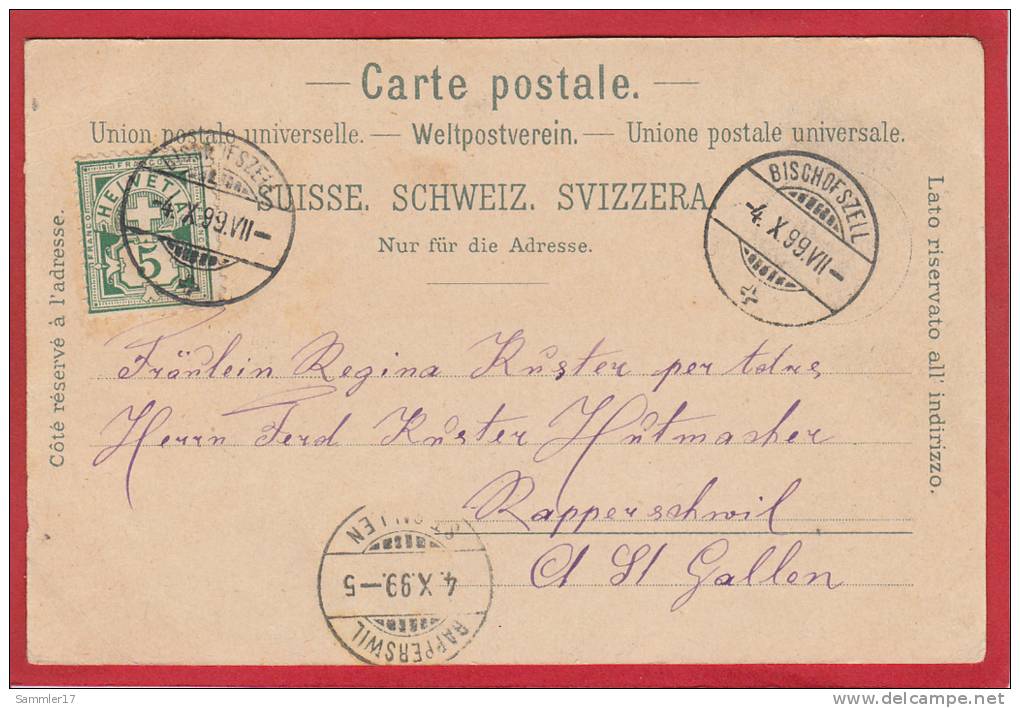 — Carte postale. —
Union postale universelle. — Weltpostverein. — Unione postale universale.
SUISSE. SCHWEIZ. SVIZZERA.
Nur für die Adresse.
Côté réservé à l'adresse.
Lato riservato all' indirizzo.
FRANCO
HELVETIA
FRANCO
5
BISCHOFSZELL
-4. X. 99. VII—
BISCHOFSZELL
-4. X. 99. VII—
Fräulein Regina Kuster per Adrs
Herrn Ferd Kuster Hutmacher
Rapperschwil
Ct St Gallen
(ST. GALLEN)
4. X. 99. — 5
RAPPERSWIL
Sammler17
www.delcampe.net